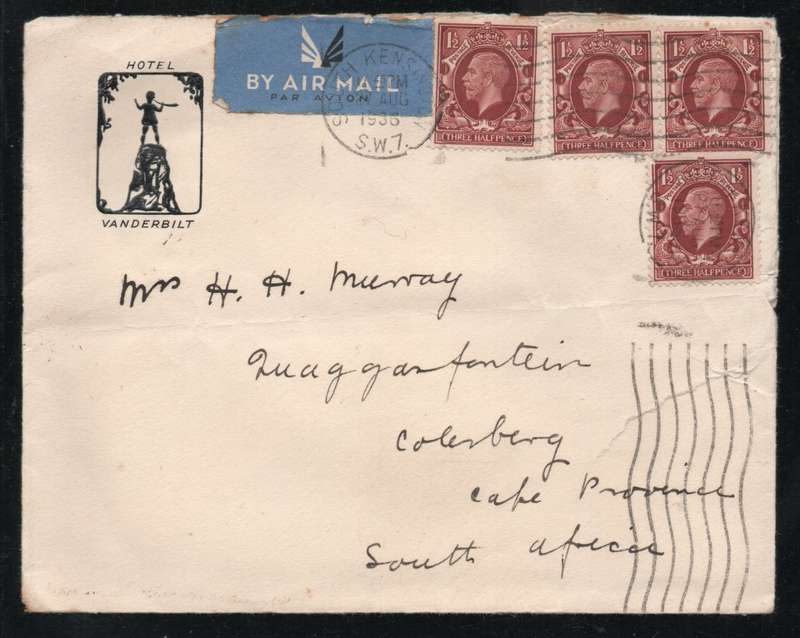 HOTEL
VANDERBILT
BY AIR MAIL
PAR AVION
SOUTH KENS
PM
AUG
1936
S.W.7.
1½ 1½
THREE HALFPENCE
1½ 1½
THREE HALFPENCE
1½ 1½
THREE HALFPENCE
1½ 1½
THREE HALFPENCE
Mrs H. H. Murray
Quaggasfontein
Colesberg
Cape Province
South Africa